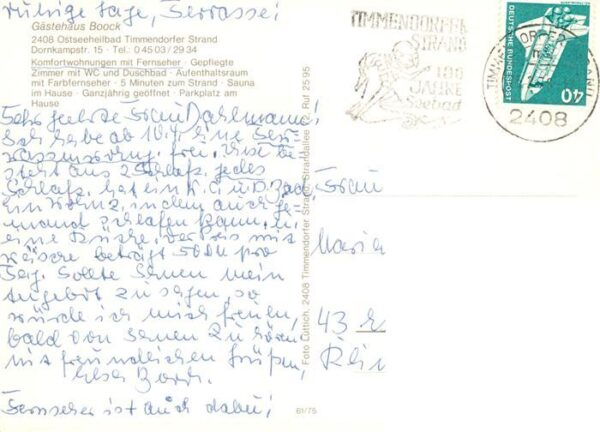 ruhige Lage, Terrasse!
Gästehaus Boock
2408 Ostseeheilbad Timmendorfer Strand
Dornkampstr. 15 · Tel.: 0 45 03 / 29 34
Komfortwohnungen mit Fernseher · Gepflegte
Zimmer mit WC und Duschbad · Aufenthaltsraum
mit Farbfernseher · 5 Minuten zum Strand · Sauna
im Hause · Ganzjährig geöffnet · Parkplatz am
Hause
Sehr geehrte Frau Dahlmann!
Ich habe ab 10.4 eine
frei. Diese be-
steht aus 2 Schlafz. jedes
Schlafz. hat ein W.C. u. D.Bad,
ein Wohnz. in dem auch je-
mand schlafen kann, u.
eine Küche. Der Preis mit
Wäsche beträgt 50 DM pro
Tag. Sollte Ihnen mein
Angebot zu sagen, so
würde ich mich freuen,
bald von Ihnen zu hören
mit freundlichen Grüßen,
Boock.
Fernseher ist auch dabei!
Foto Lüttich, 2408 Timmendorfer Strand, Strandallee Ruf 25 95
81/75
TIMMENDORFER
STRAND
100
JAHRE
Seebad
2408
DEUTSCHE BUNDESPOST
40
Frau
Maria
43